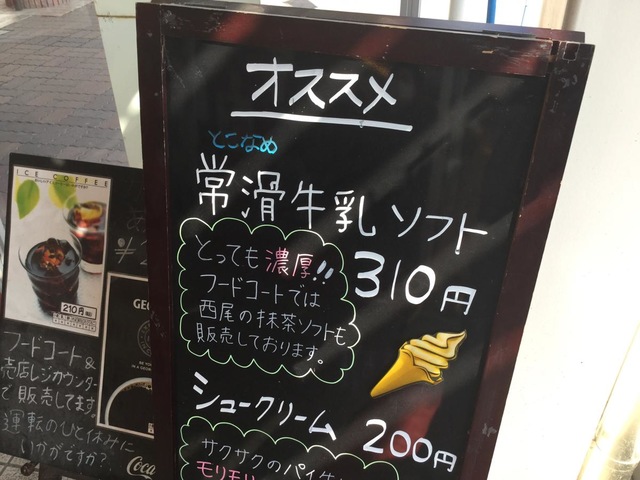 オススメ
とこなめ
常滑牛乳ソフト
310円
とっても濃厚!!
フードコートでは
西尾の抹茶ソフトも
販売しております。
シュークリーム
200円
サクサクのパイ生
モリモリ
ICE COFFEE
210円
フードコート&
売店レジカウンター
で販売してます。
運転のひと休みに
いかがですか?
GEO
Coca